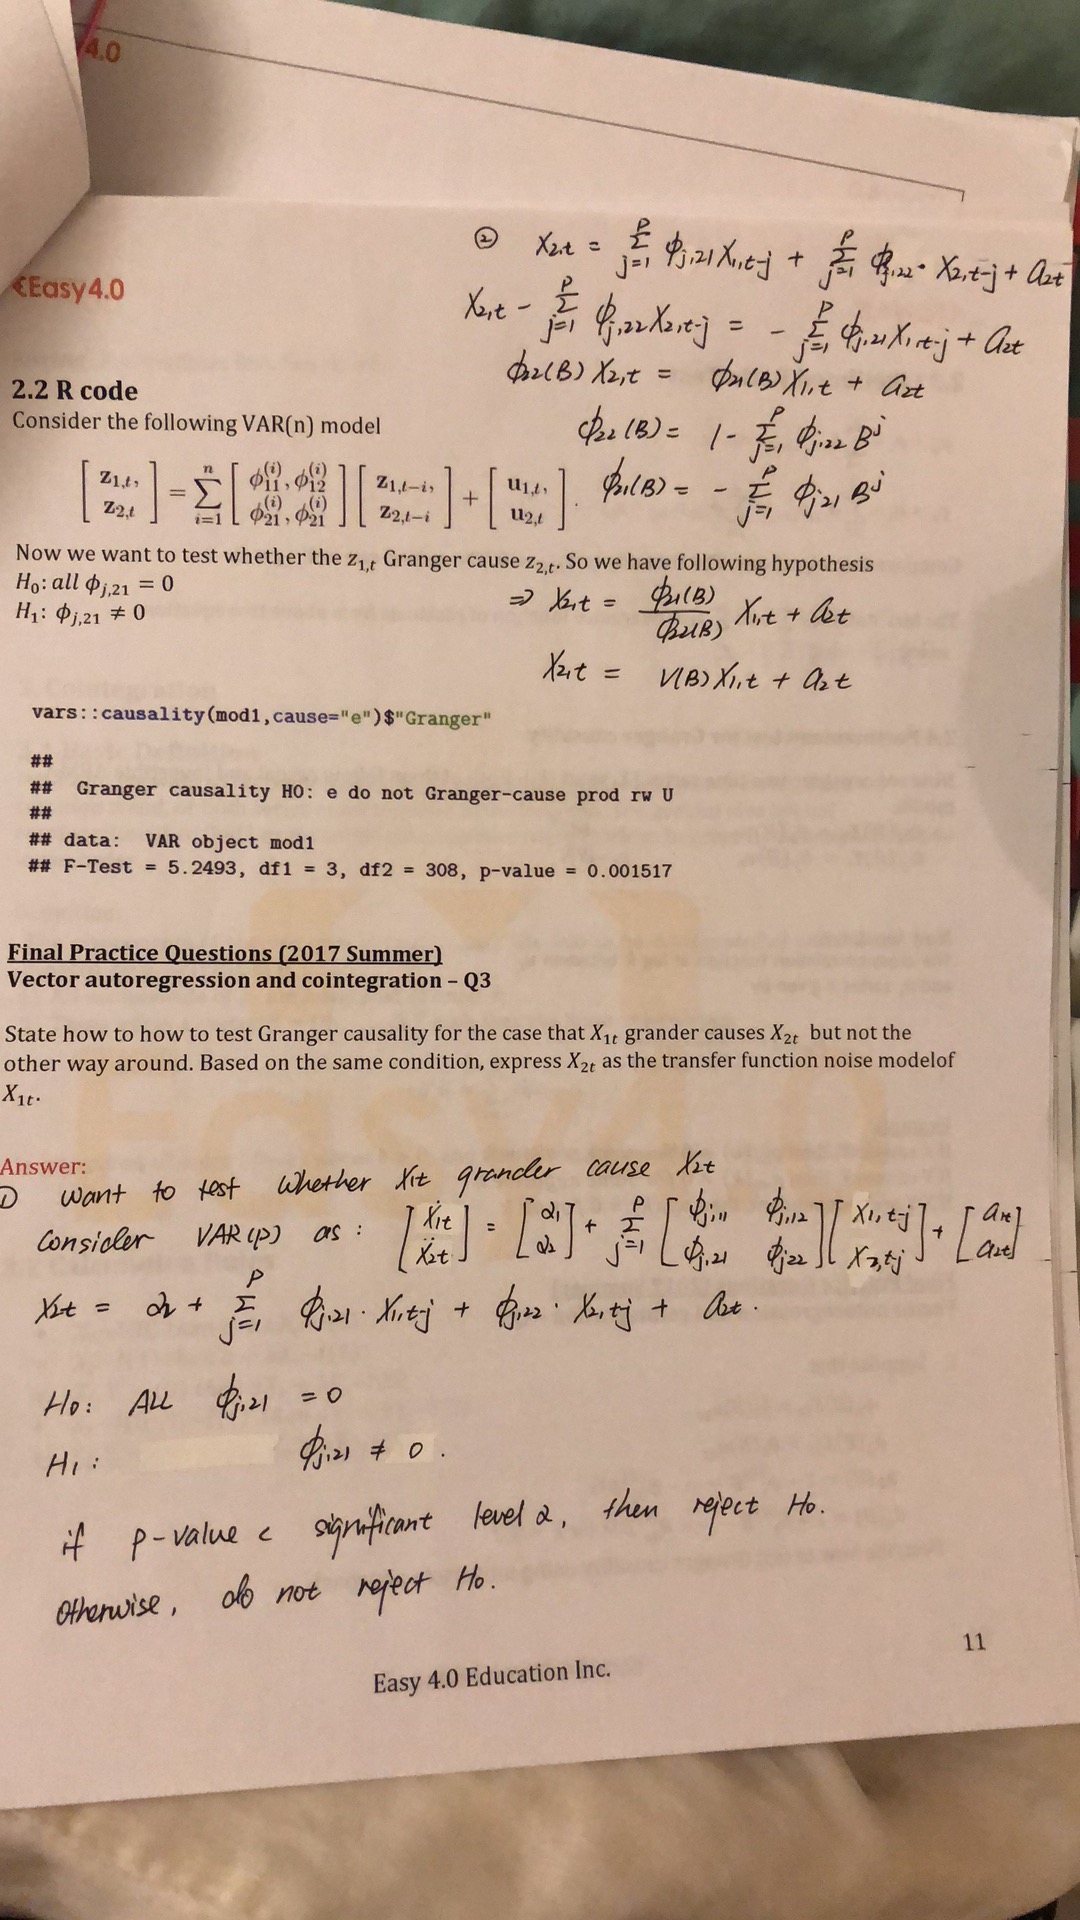 4.0
② X₂,t = Σ_{j=1}^{p} ϕ_{j,21} X_{1,t-j} + Σ_{j=1}^{p} ϕ_{j,22} · X_{2,t-j} + a₂t
€Easy4.0
X₂,t - Σ_{j=1}^{p} ϕ_{j,22} X_{2,t-j} = - Σ_{j=1}^{p} ϕ_{j,21} X_{1,t-j} + a₂t
ϕ₂₂(B) X₂,t = ϕ₂₁(B) X₁,t + a₂t
2.2 R code
Consider the following VAR(n) model
ϕ₂₂(B) = 1 - Σ_{j=1}^{p} ϕ_{j,22} B^j
[z_{1,t}, z_{2,t}] = Σ_{i=1}^{n} [ϕ_{11}^{(i)}, ϕ_{12}^{(i)} ϕ_{21}^{(i)}, ϕ_{21}^{(i)}] [z_{1,t-i}, z_{2,t-i}] + [u_{1,t}, u_{2,t}].
ϕ₂₁(B) = - Σ_{j=1}^{p} ϕ_{j,21} B^j
Now we want to test whether the z_{1,t} Granger cause z_{2,t}. So we have following hypothesis
H₀: all ϕ_{j,21} = 0
H₁: ϕ_{j,21} ≠ 0
⇒ X₂,t = ϕ₂₁(B)/ϕ₂₂(B) X₁,t + a₂t
X₂,t = V(B) X₁,t + a₂t
vars::causality(mod1,cause="e")$"Granger"
##
## Granger causality H0: e do not Granger-cause prod rw U
##
## data: VAR object mod1
## F-Test = 5.2493, df1 = 3, df2 = 308, p-value = 0.001517
Final Practice Questions (2017 Summer)
Vector autoregression and cointegration – Q3
State how to how to test Granger causality for the case that X₁t grander causes X₂t but not the
other way around. Based on the same condition, express X₂t as the transfer function noise modelof
X₁t.
Answer:
① want to test whether X₁t grander cause X₂t
Consider VAR(p) as : [Ẍ₁t Ẍ₂t] = [α₁ α₂] + Σ_{j=1}^{p} [ϕ_{j,11} ϕ_{j,12} ϕ_{j,21} ϕ_{j,22}] [X_{1,t-j} X_{2,t-j}] + [a₁t a₂t]
X₂t = α₂ + Σ_{j=1}^{p} ϕ_{j,21} · X_{1,t-j} + ϕ_{j,22} · X_{2,t-j} + a₂t .
H₀: ALL ϕ_{j,21} = 0
H₁: ϕ_{j,21} ≠ 0 .
if p-value < significant level α, then reject H₀.
otherwise, do not reject H₀.
11
Easy 4.0 Education Inc.